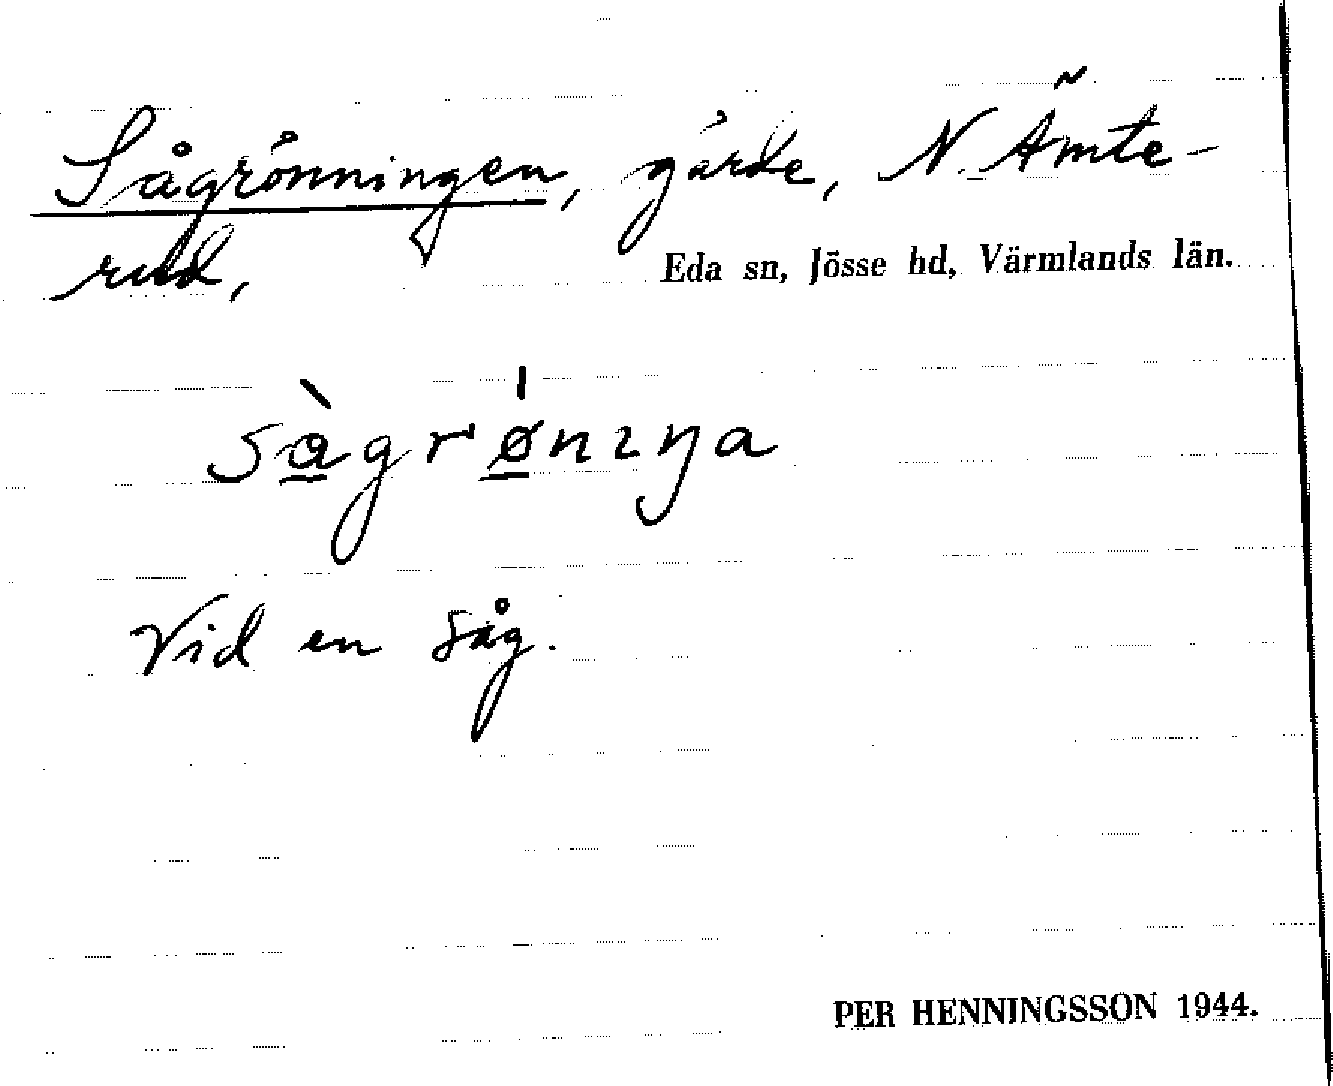 Sågrönningen, gärde, N. Ämte-
rud,
Eda sn, Jösse hd, Värmlands län.
sàgrǿnıŋa
Vid en såg.
PER HENNINGSSON 1944.